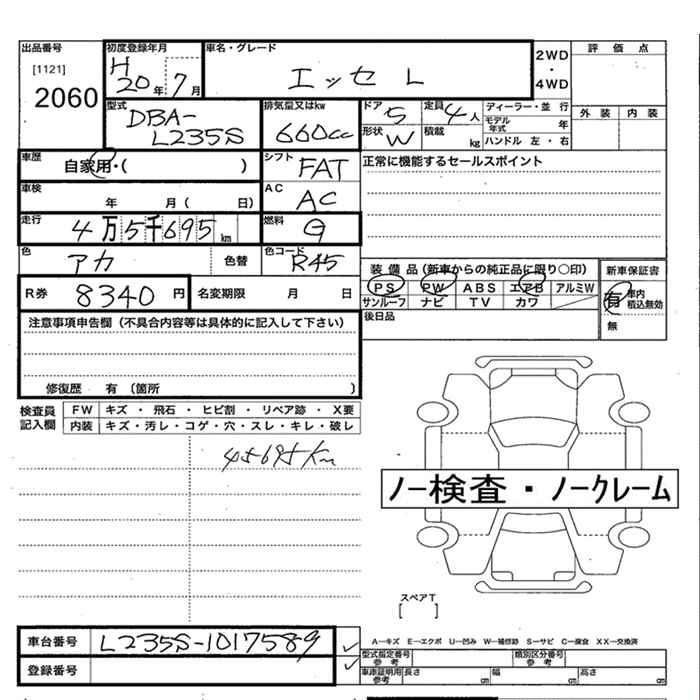 出品番号 初度登録年月 車名・グレード 2WD 評価点
[1121] H エッセ L ・
2060 20年 7月 4WD
型式 排気量又はkw ドア 5 定員 4人 ディーラー・並行 外装 内装
DBA- モデル年式 年
L235S 660cc 形状 W 積載 kg ハンドル 左・右
車歴 自家用・( ) シフト FAT 正常に機能するセールスポイント
車検 年 月( 日) AC AC
走行 4万5千695km 燃料 G
色 アカ 色替 色コード R45 装備品(新車からの純正品に限り○印) 新車保証書
R券 8340円 名変期限 月 日 PS PW ABS エアB アルミW 有 車内積込無効
サンルーフ ナビ TV カワ
注意事項申告欄(不具合内容等は具体的に記入して下さい) 後日品 無
修復歴 有 (箇所 )
検査員 FW キズ ・ 飛石 ・ ヒビ割 ・ リペア跡 ・ X要
記入欄 内装 キズ・汚レ・コゲ・穴・スレ・キレ・破レ
45695km
ノー検査・ノークレーム
スペアT
[ ]
車台番号 L235S-1017589 A―キズ E―エクボ U―凹み W―補修跡 S―サビ C―腐食 XX―交換済
型式指定番号 参考 類別区分番号 参考
登録番号 車庫証明用 参考 長さ cm 幅 cm 高さ cm